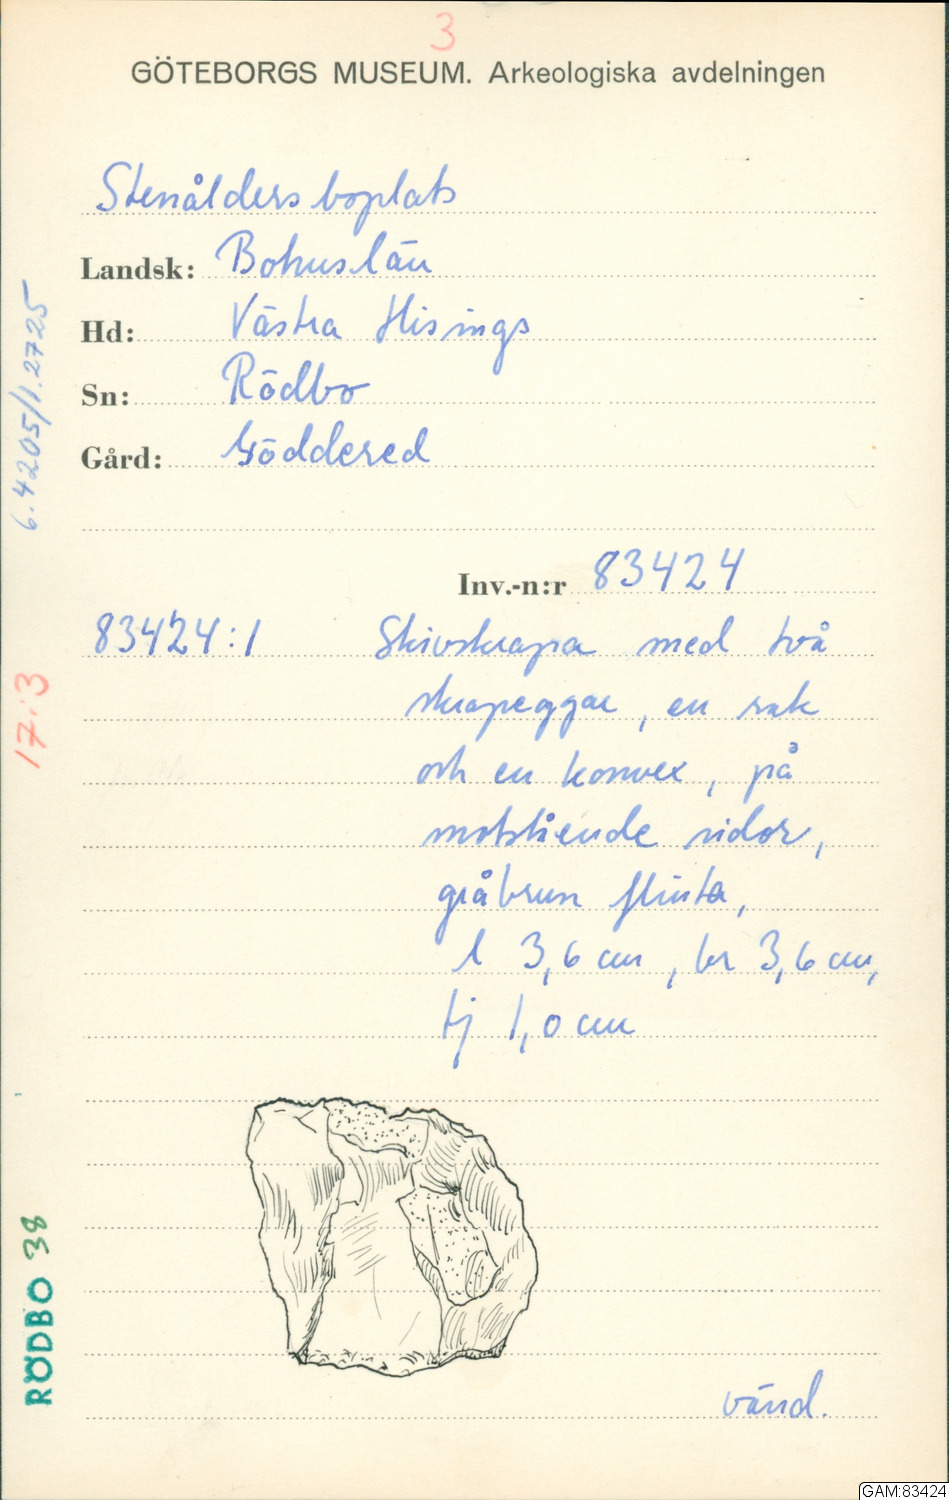 3
GÖTEBORGS MUSEUM. Arkeologiska avdelningen
Stenålders boplats
Landsk: Bohuslän
Hd: Västra Hisings
Sn: Rödbo
Gård: Göddered
Inv.-n:r 83424
83424:1 Skivskrapa med två
skrapeggar, en rak
och en konvex, på
motstående sidor,
gråbrun flinta,
l 3,6 cm, br 3,6 cm,
tj 1,0 cm
vänd.
6.4205/1.2725
17:3
RÖDBO 38
GAM:83424